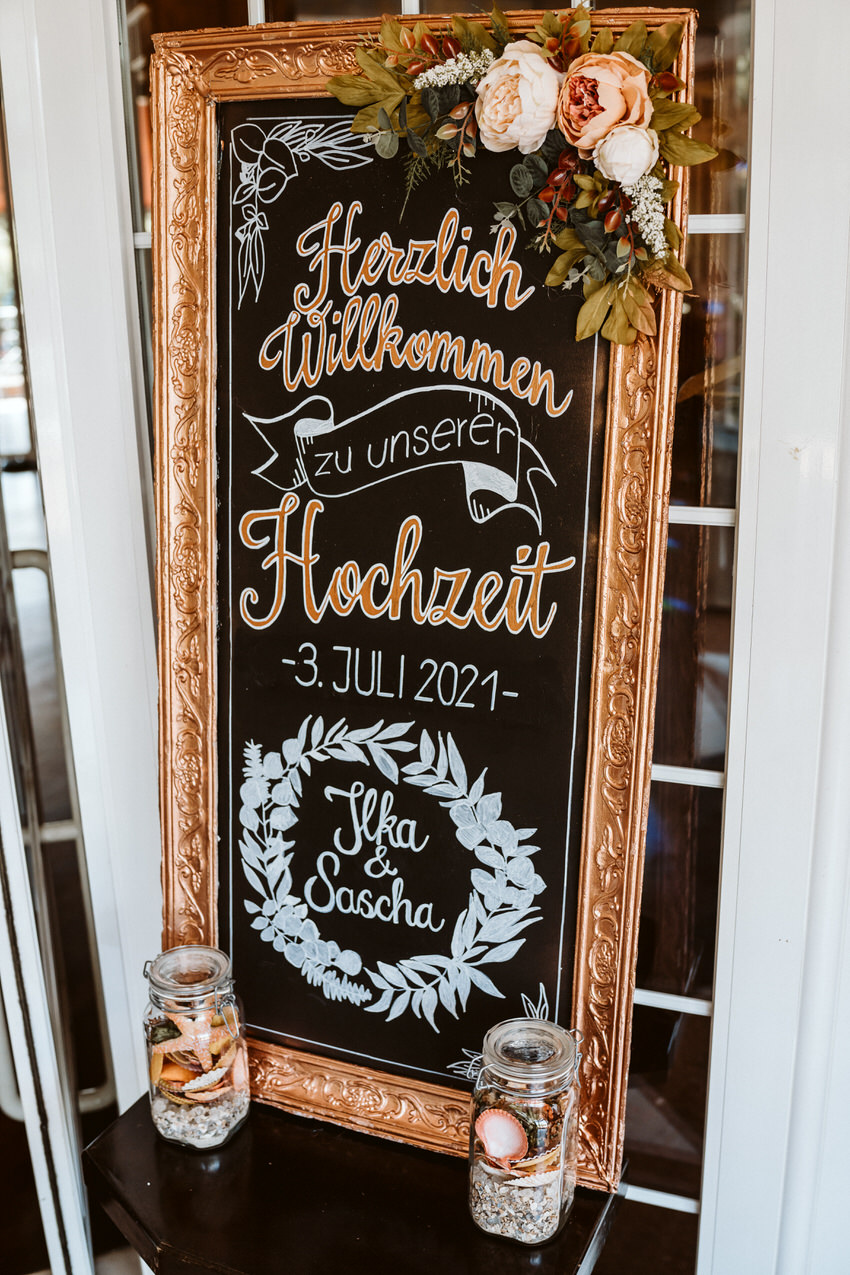 Herzlich
Willkommen
zu unserer
Hochzeit
-3. JULI 2021-
Ilka
&
Sascha